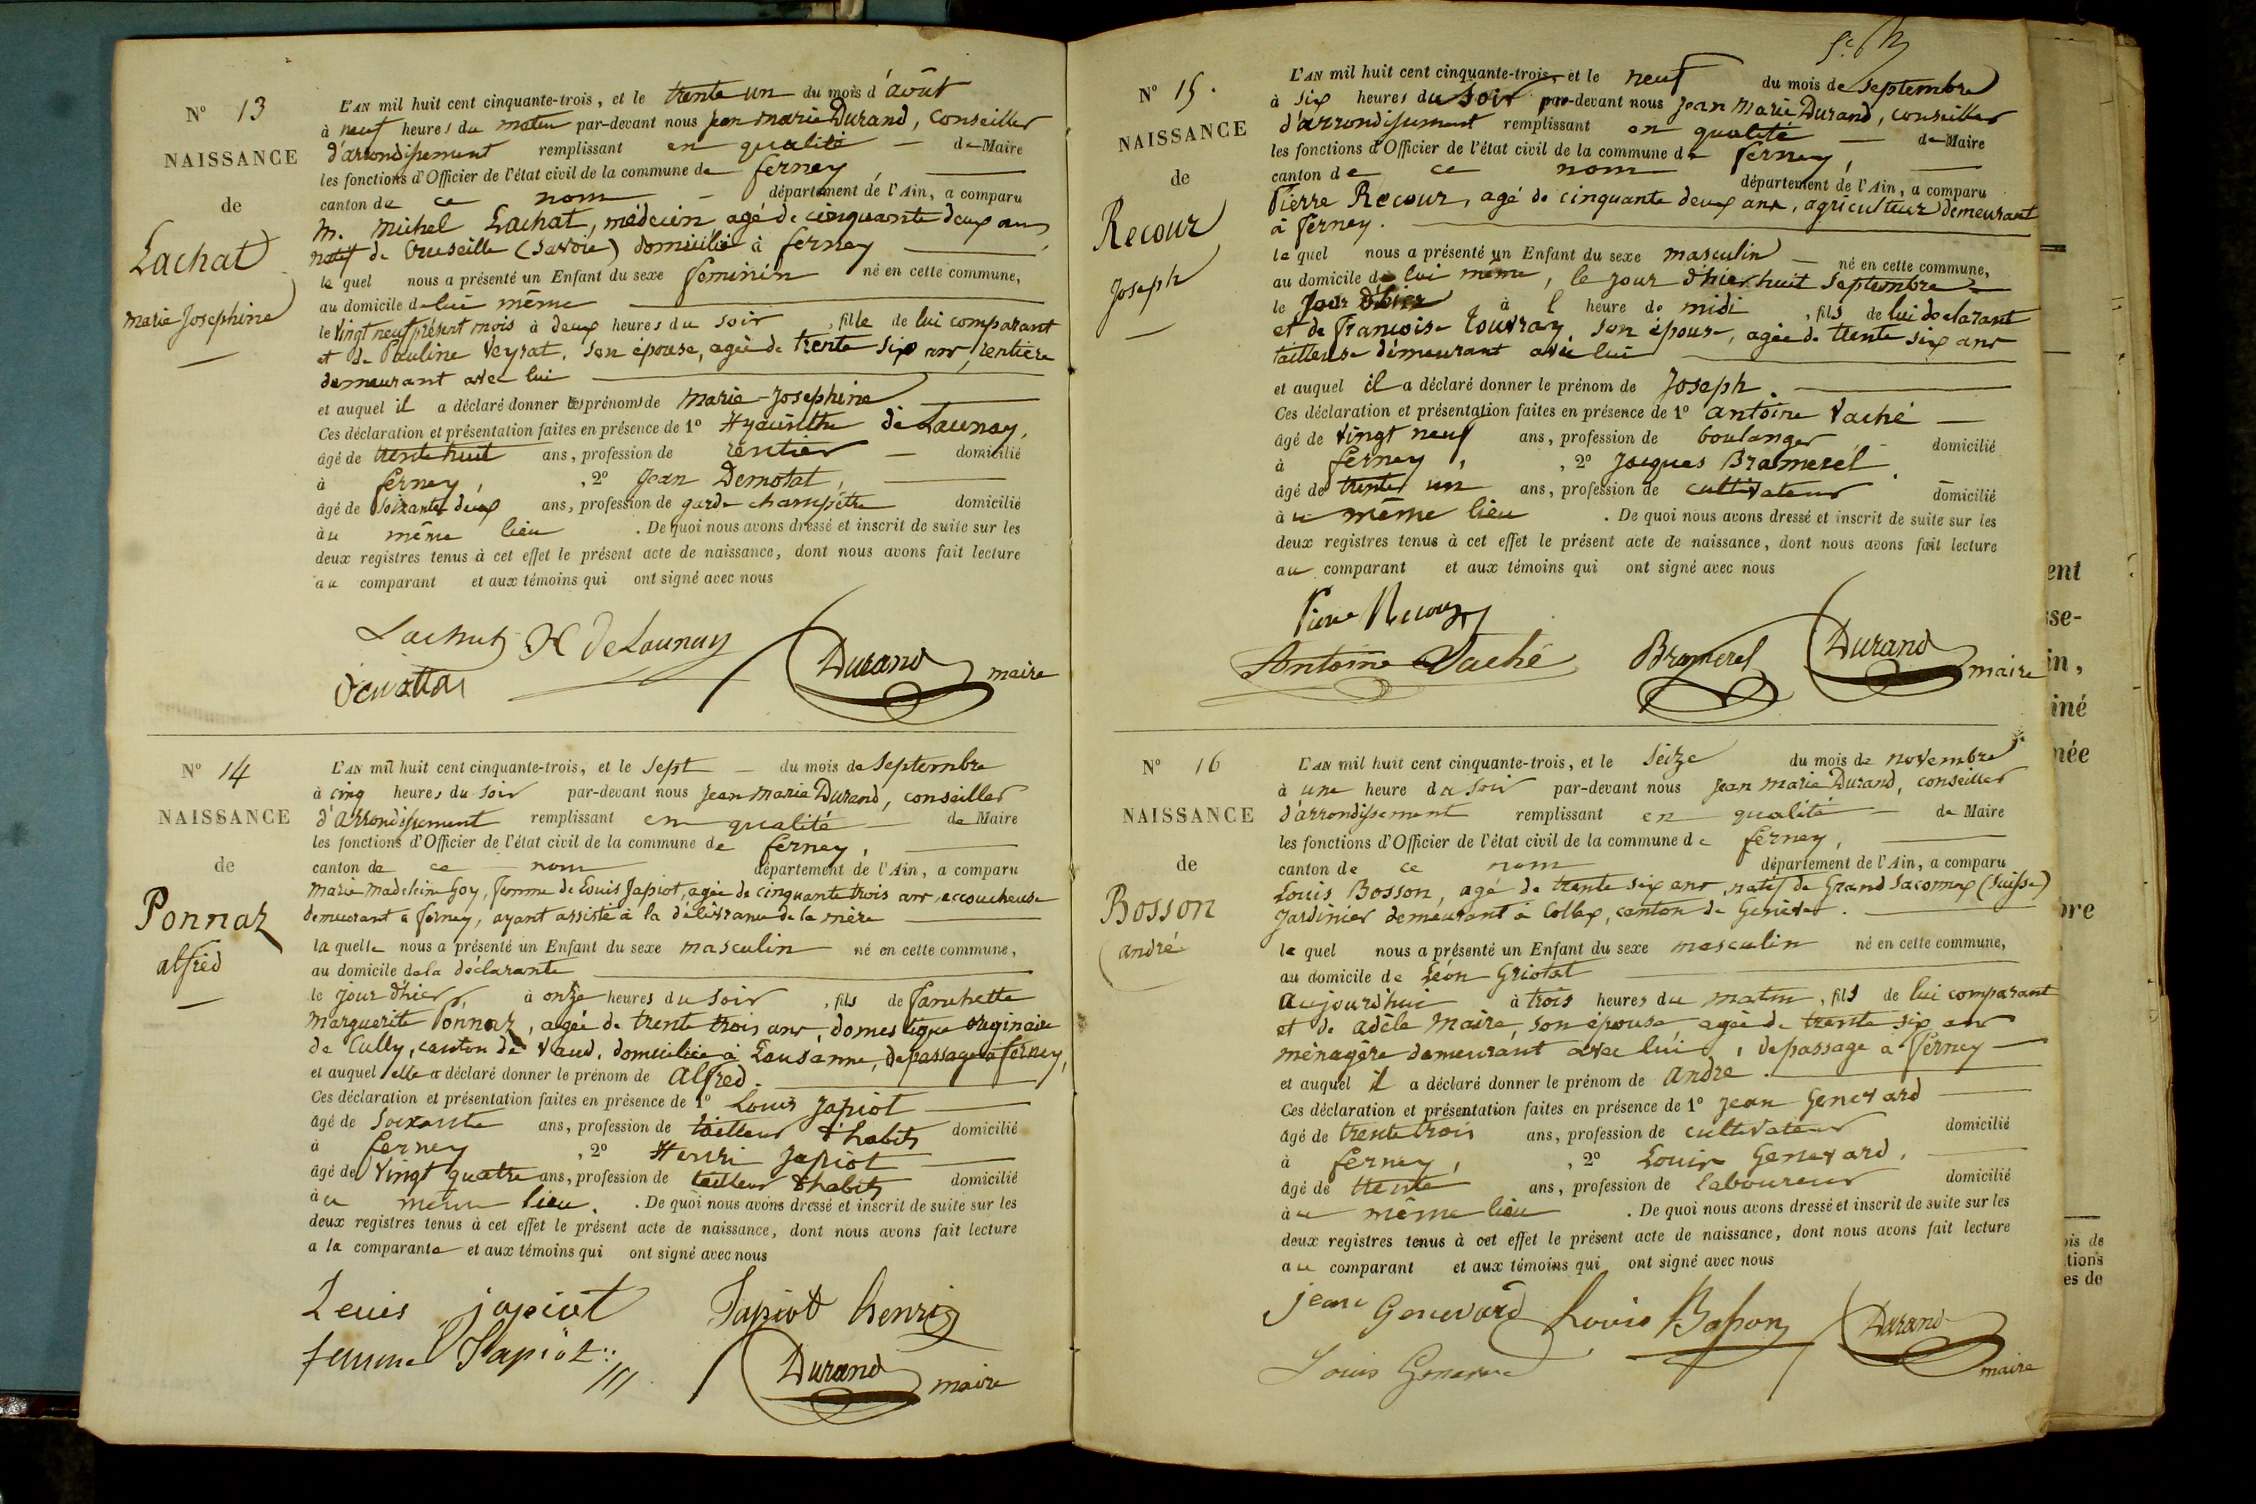 N° 13
NAISSANCE
de
Lachat
marie Josephine
L'AN mil huit cent cinquante-trois, et le trente un du mois d'août
à neuf heures du matin par-devant nous jean marie Durand, conseiller
d'arrondissement remplissant en qualité — de Maire
les fonctions d'Officier de l'état civil de la commune de ferney,
canton de ce nom — département de l'Ain, a comparu
M. Michel Lachat, médecin, agé de cinquante deux ans,
natif de Cruseille (Savoie) domicilié à ferney
le quel nous a présenté un Enfant du sexe féminin né en cette commune,
au domicile de lui même
le vingt neuf présent mois à deux heures du soir, fille de lui comparant
et de Pauline Veyrat, son épouse, agée de trente six ans, rentière
demeurant avec lui
et auquel il a déclaré donner les prénoms de marie-Josephine
Ces déclaration et présentation faites en présence de 1° Hyacinthe de Launay,
âgé de trente huit ans, profession de rentier — domicilié
à ferney, , 2° Jean Demotat,
âgé de soixante deux ans, profession de garde champétre domicilié
au même lieu . De quoi nous avons dressé et inscrit de suite sur les
deux registres tenus à cet effet le présent acte de naissance, dont nous avons fait lecture
au comparant et aux témoins qui ont signé avec nous
Lachat H DeLaunay
Durand maire
N° 14
NAISSANCE
de
Ponnaz
alfred
L'AN mil huit cent cinquante-trois, et le sept — du mois de Septembre
à cinq heures du soir par-devant nous jean marie Durand, conseiller
d'arrondissement remplissant en qualité — de Maire
les fonctions d'Officier de l'état civil de la commune de ferney,
canton de ce nom département de l'Ain, a comparu
Marie Madeleine Goy, femme de Louis Japiot, agée de cinquante trois ans, accoucheuse
demeurant à ferney, ayant assisté à la délivrance de la mère
la quelle nous a présenté un Enfant du sexe masculin né en cette commune,
au domicile de la déclarante
le jour d'hier, à onze heures du soir, fils de fanchette
Marguerite Ponnaz, agée de trente trois ans, domestique originaire
de Cully, canton de Vaud, domiciliée à Lausanne, de passage à ferney,
et auquel elle a déclaré donner le prénom de alfred.
Ces déclaration et présentation faites en présence de 1° Louis Japiot
âgé de soixante ans, profession de tailleur d'habits domicilié
à ferney , 2° Henri Japiot
âgé de vingt quatre ans, profession de tailleur d'habits domicilié
au même lieu. . De quoi nous avons dressé et inscrit de suite sur les
deux registres tenus à cet effet le présent acte de naissance, dont nous avons fait lecture
a la comparante et aux témoins qui ont signé avec nous
Louis japiot Japiot henri
femme Japiot
Durand maire
N° 15.
NAISSANCE
de
Recour
Joseph
L'AN mil huit cent cinquante-trois, et le neuf du mois de septembre
à six heures du soir par-devant nous jean Marie Durand, conseiller
d'arrondissement remplissant en qualité — de Maire
les fonctions d'Officier de l'état civil de la commune de ferney,
canton de ce nom département de l'Ain, a comparu
Pierre Recour, agé de cinquante deux ans, agriculteur demeurant
à ferney.
le quel nous a présenté un Enfant du sexe masculin — né en cette commune,
au domicile de lui même, le jour d'hier huit septembre
le jour d'hier à l heure de midi, fils de lui declarant
et de françoise Touvray, son épouse, agée de trente six ans
tailleuse démeurant avec lui
et auquel il a déclaré donner le prénom de Joseph.
Ces déclaration et présentation faites en présence de 1° antoine Vaché
âgé de vingt neuf ans, profession de boulanger domicilié
à ferney, , 2° Jacques Bramerel.
âgé de trente un ans, profession de cultivateur domicilié
au même lieu . De quoi nous avons dressé et inscrit de suite sur les
deux registres tenus à cet effet le présent acte de naissance, dont nous avons fait lecture
au comparant et aux témoins qui ont signé avec nous
Pierre Recour
Antoine Vaché Bramerel Durand maire
N° 16
NAISSANCE
de
Bosson
andré
L'AN mil huit cent cinquante-trois, et le seize du mois de novembre
à une heure du soir par-devant nous jean marie Durand, conseiller
d'arrondissement remplissant en qualité — de Maire
les fonctions d'Officier de l'état civil de la commune de ferney,
canton de ce nom département de l'Ain, a comparu
Louis Bosson, agé de trente six ans, natif de Grand Saconnex (Suisse)
jardinier demeurant à Collex, canton de Genève.
le quel nous a présenté un Enfant du sexe masculin né en cette commune,
au domicile de Léon Griotat
aujourd'hui à trois heures du matin, fils de lui comparant
et de adèle Maire, son épouse, agée de trente six ans
ménagère demeurant avec lui, de passage a ferney
et auquel il a déclaré donner le prénom de andré.
Ces déclaration et présentation faites en présence de 1° jean Genevard
âgé de trente trois ans, profession de cultivateur domicilié
à ferney, , 2° Louis Genevard,
âgé de trente ans, profession de laboureur domicilié
au même lieu . De quoi nous avons dressé et inscrit de suite sur les
deux registres tenus à cet effet le présent acte de naissance, dont nous avons fait lecture
au comparant et aux témoins qui ont signé avec nous
jean Genevard Louis Bosson Durand
Louis Genevard maire